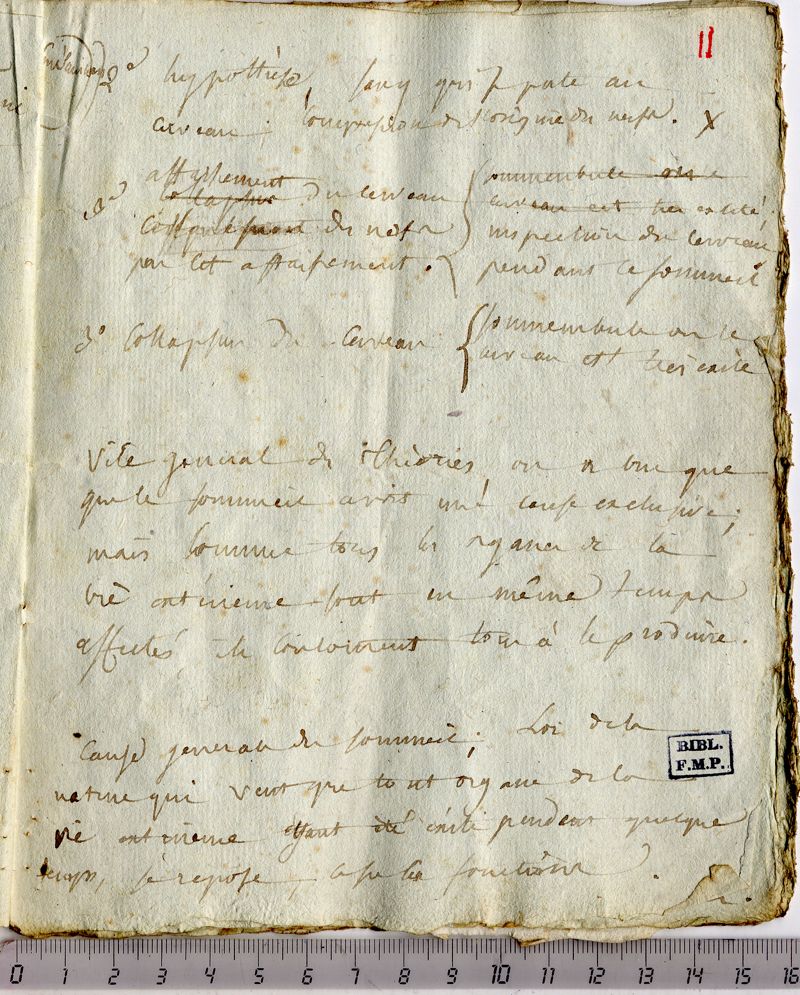 11
2° hypothèse, sang qui se porte au
cerveau. Compression de l'origine du nerfs. X
affaissement
collapsus du cerveau
des nerfs
par cet affaissement.
somnambule où le
cerveau est très excité,
inspection du cerveau
pendant le sommeil
3° Collapsus du cerveau
somnambule ou le
cerveau est très excité
Vice general des théories, on a cru que
que le sommeil avoit une cause exclusive;
mais comme tous les organes de la
vie exterieure sont en même temps
affectés ils concourent tous à le produire.
Cause generale du sommeil; Loi de la
nature qui veut que tout organe de la
vie exterieure ayant été excité pendant quelque
temps, se repose, cesse les fonctions.
BIBL.
F.M.P.
0 1 2 3 4 5 6 7 8 9 10 11 12 13 14 15 16